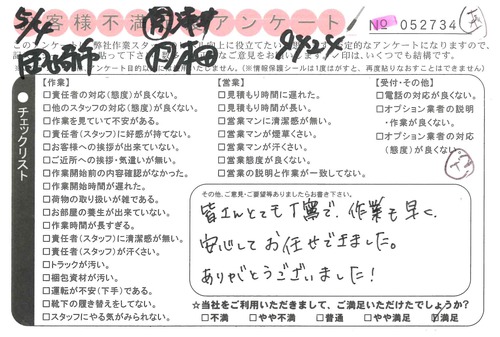 5/4
お客様不満足アンケート
№ 052734
岡崎市
【作業】
□責任者の対応(態度)が良くない。
□他のスタッフの対応(態度)が良くない。
□作業を見ていて不安がある。
□責任者(スタッフ)に好感が持てない。
□お客様への挨拶が出来ていない。
□ご近所への挨拶・気遣いが無い。
□作業開始前の内容確認がなかった。
□作業開始時間が遅れた。
□荷物の取り扱いが雑である。
□お部屋の養生が出来ていない。
□作業時間が長すぎる。
□責任者(スタッフ)に清潔感が無い。
□責任者(スタッフ)が汗くさい。
□トラックが汚い。
□梱包資材が汚い。
□運転が不安(下手)である。
□靴下の履き替えをしてない。
□スタッフにやる気がみられない。
【営業】
□見積もり時間に遅れた。
□見積もり時間が長い。
□営業マンに清潔感が無い。
□営業マンが煙草くさい。
□営業マンが汗くさい。
□営業態度が良くない。
□営業の説明と作業が一致してない。
【受付・その他】
□電話の対応が良くない。
□オプション業者の説明
・作業が良くない。
□オプション業者の対応
(態度)が良くない。
●チェックリスト
その他、ご意見・ご要望等ありましたらお書き下さい。
皆さんとても丁寧で、作業も早く、
安心してお任せできました。
ありがとうございました!
☆当社をご利用いただきまして、ご満足いただけましたでしょうか?
□不満 □やや不満 □普通 □やや満足 ☑満足